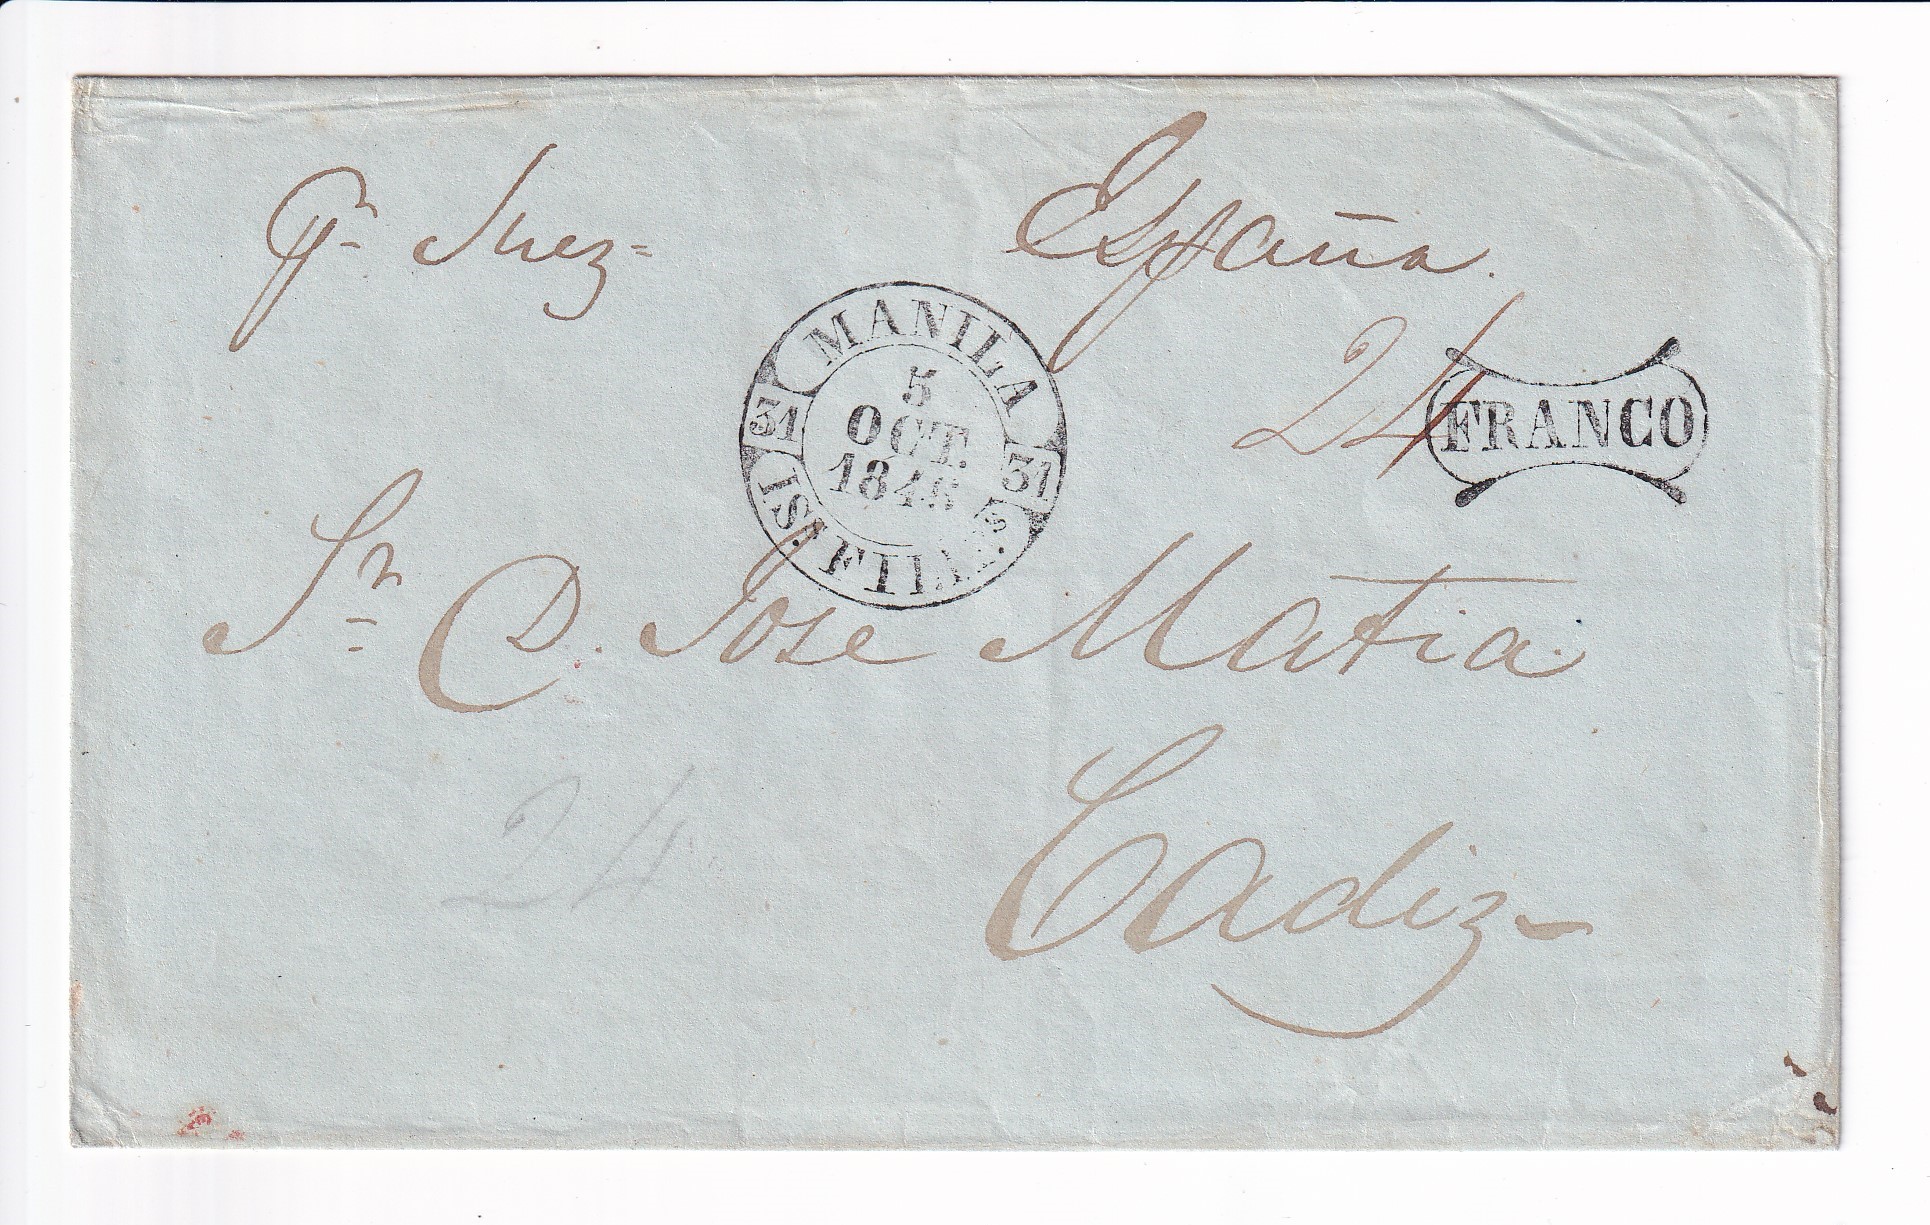 pr Suez= España.
MANILA
5
OCT.
31 31
ISs. FILIPs.
24 FRANCO
Sr D. Jose Matia.
Cadiz-
24